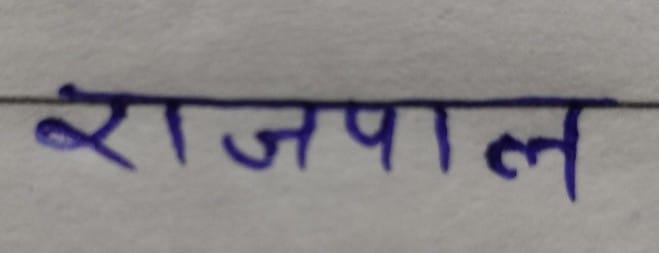 राजपाल